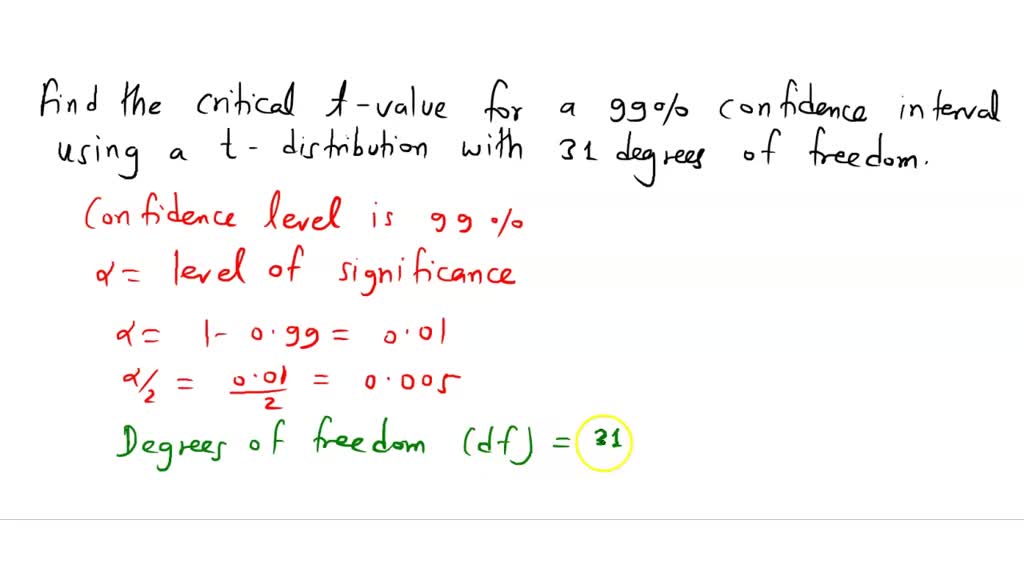 Find the critical t-value for a 99% confidence interval
using a t-distribution with 31 degrees of freedom.
Confidence level is 99%
α = level of significance
α = 1-0.99 = 0.01
α/2 = 0.01/2 = 0.005
Degrees of freedom (df) = 31